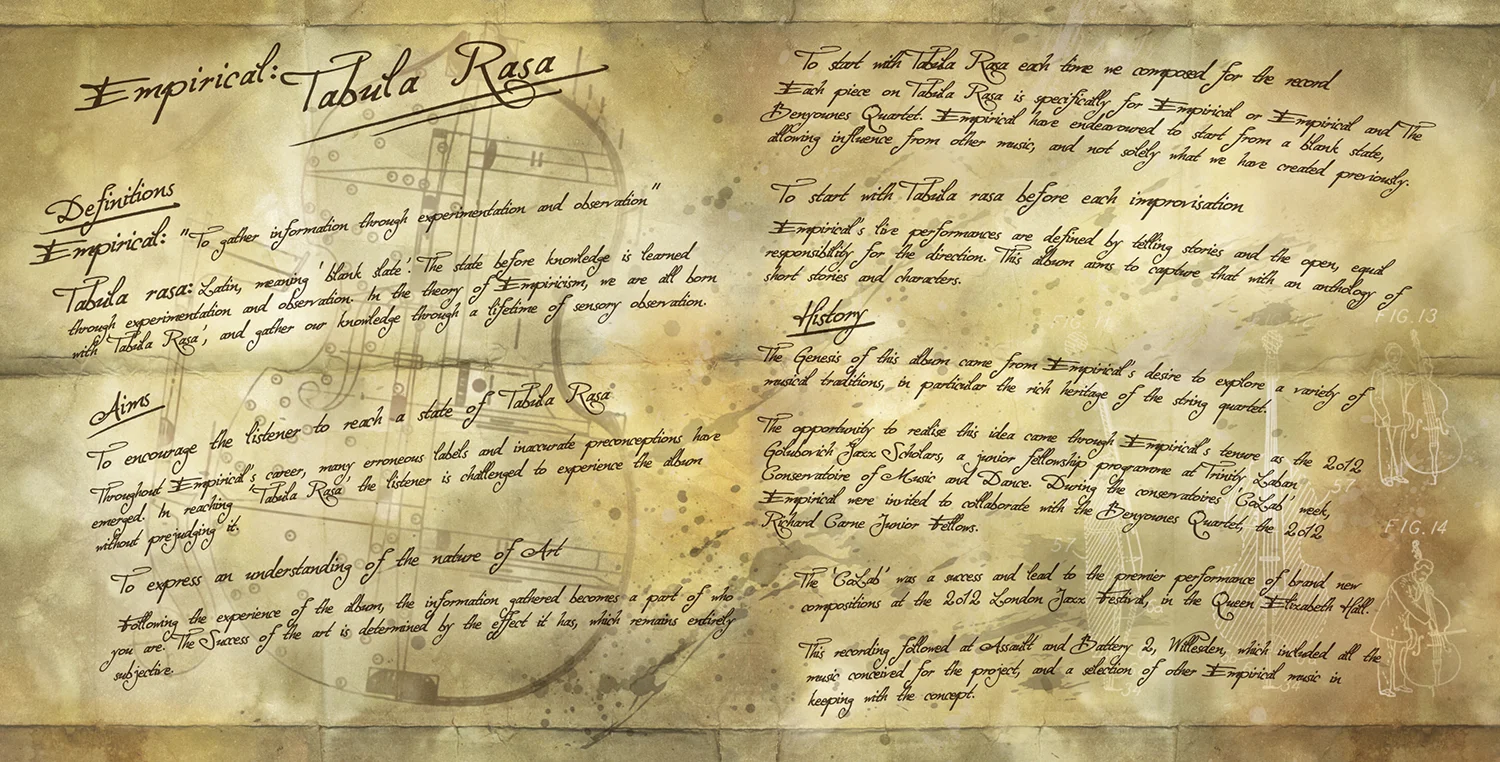 Empirical: Tabula Rasa
Definitions
Empirical: "To gather information through experimentation and observation"
Tabula rasa: Latin, meaning 'blank slate'. The state before knowledge is learned
through experimentation and observation. In the theory of Empiricism, we are all born
with 'Tabula Rasa', and gather our knowledge through a lifetime of sensory observation.
Aims
To encourage the listener to reach a state of Tabula Rasa
Throughout Empirical's career, many erroneous labels and inaccurate preconceptions have
emerged. In reaching 'Tabula Rasa' the listener is challenged to experience the album
without prejudging it.
To express an understanding of the nature of Art
Following the experience of the album, the information gathered becomes a part of who
you are. The Success of the art is determined by the effect it has, which remains entirely
subjective.
To start with Tabula Rasa each time we composed for the record
Each piece on Tabula Rasa is specifically for Empirical or Empirical and The
Benyounes Quartet. Empirical have endeavoured to start from a blank state,
allowing influence from other music, and not solely what we have created previously.
To start with Tabula rasa before each improvisation
Empirical's live performances are defined by telling stories and the open, equal
responsibility for the direction. This album aims to capture that with an anthology of
short stories and characters.
History
The Genesis of this album came from Empirical's desire to explore a variety of
musical traditions, in particular the rich heritage of the string quartet.
The opportunity to realise this idea came through Empirical's tenure as the 2012
Golubovich Jazz Scholars, a junior fellowship programe at Trinity Laban
Conservatoire of Music and Dance. During the conservatoires 'CoLab' week,
Empirical were invited to collaborate with the Benyounes Quartet, the 2012
Richard Carne Junior Fellows.
The 'CoLab' was a success and lead to the premier performance of brand new
compositions at the 2012 London Jazz Festival, in the Queen Elizabeth Hall.
This recording followed at Assault and Battery 2, Willesden, which included all the
music conceived for the project, and a selection of other Empirical music in
keeping with the concept.
FIG. 13
57
FIG. 14
57